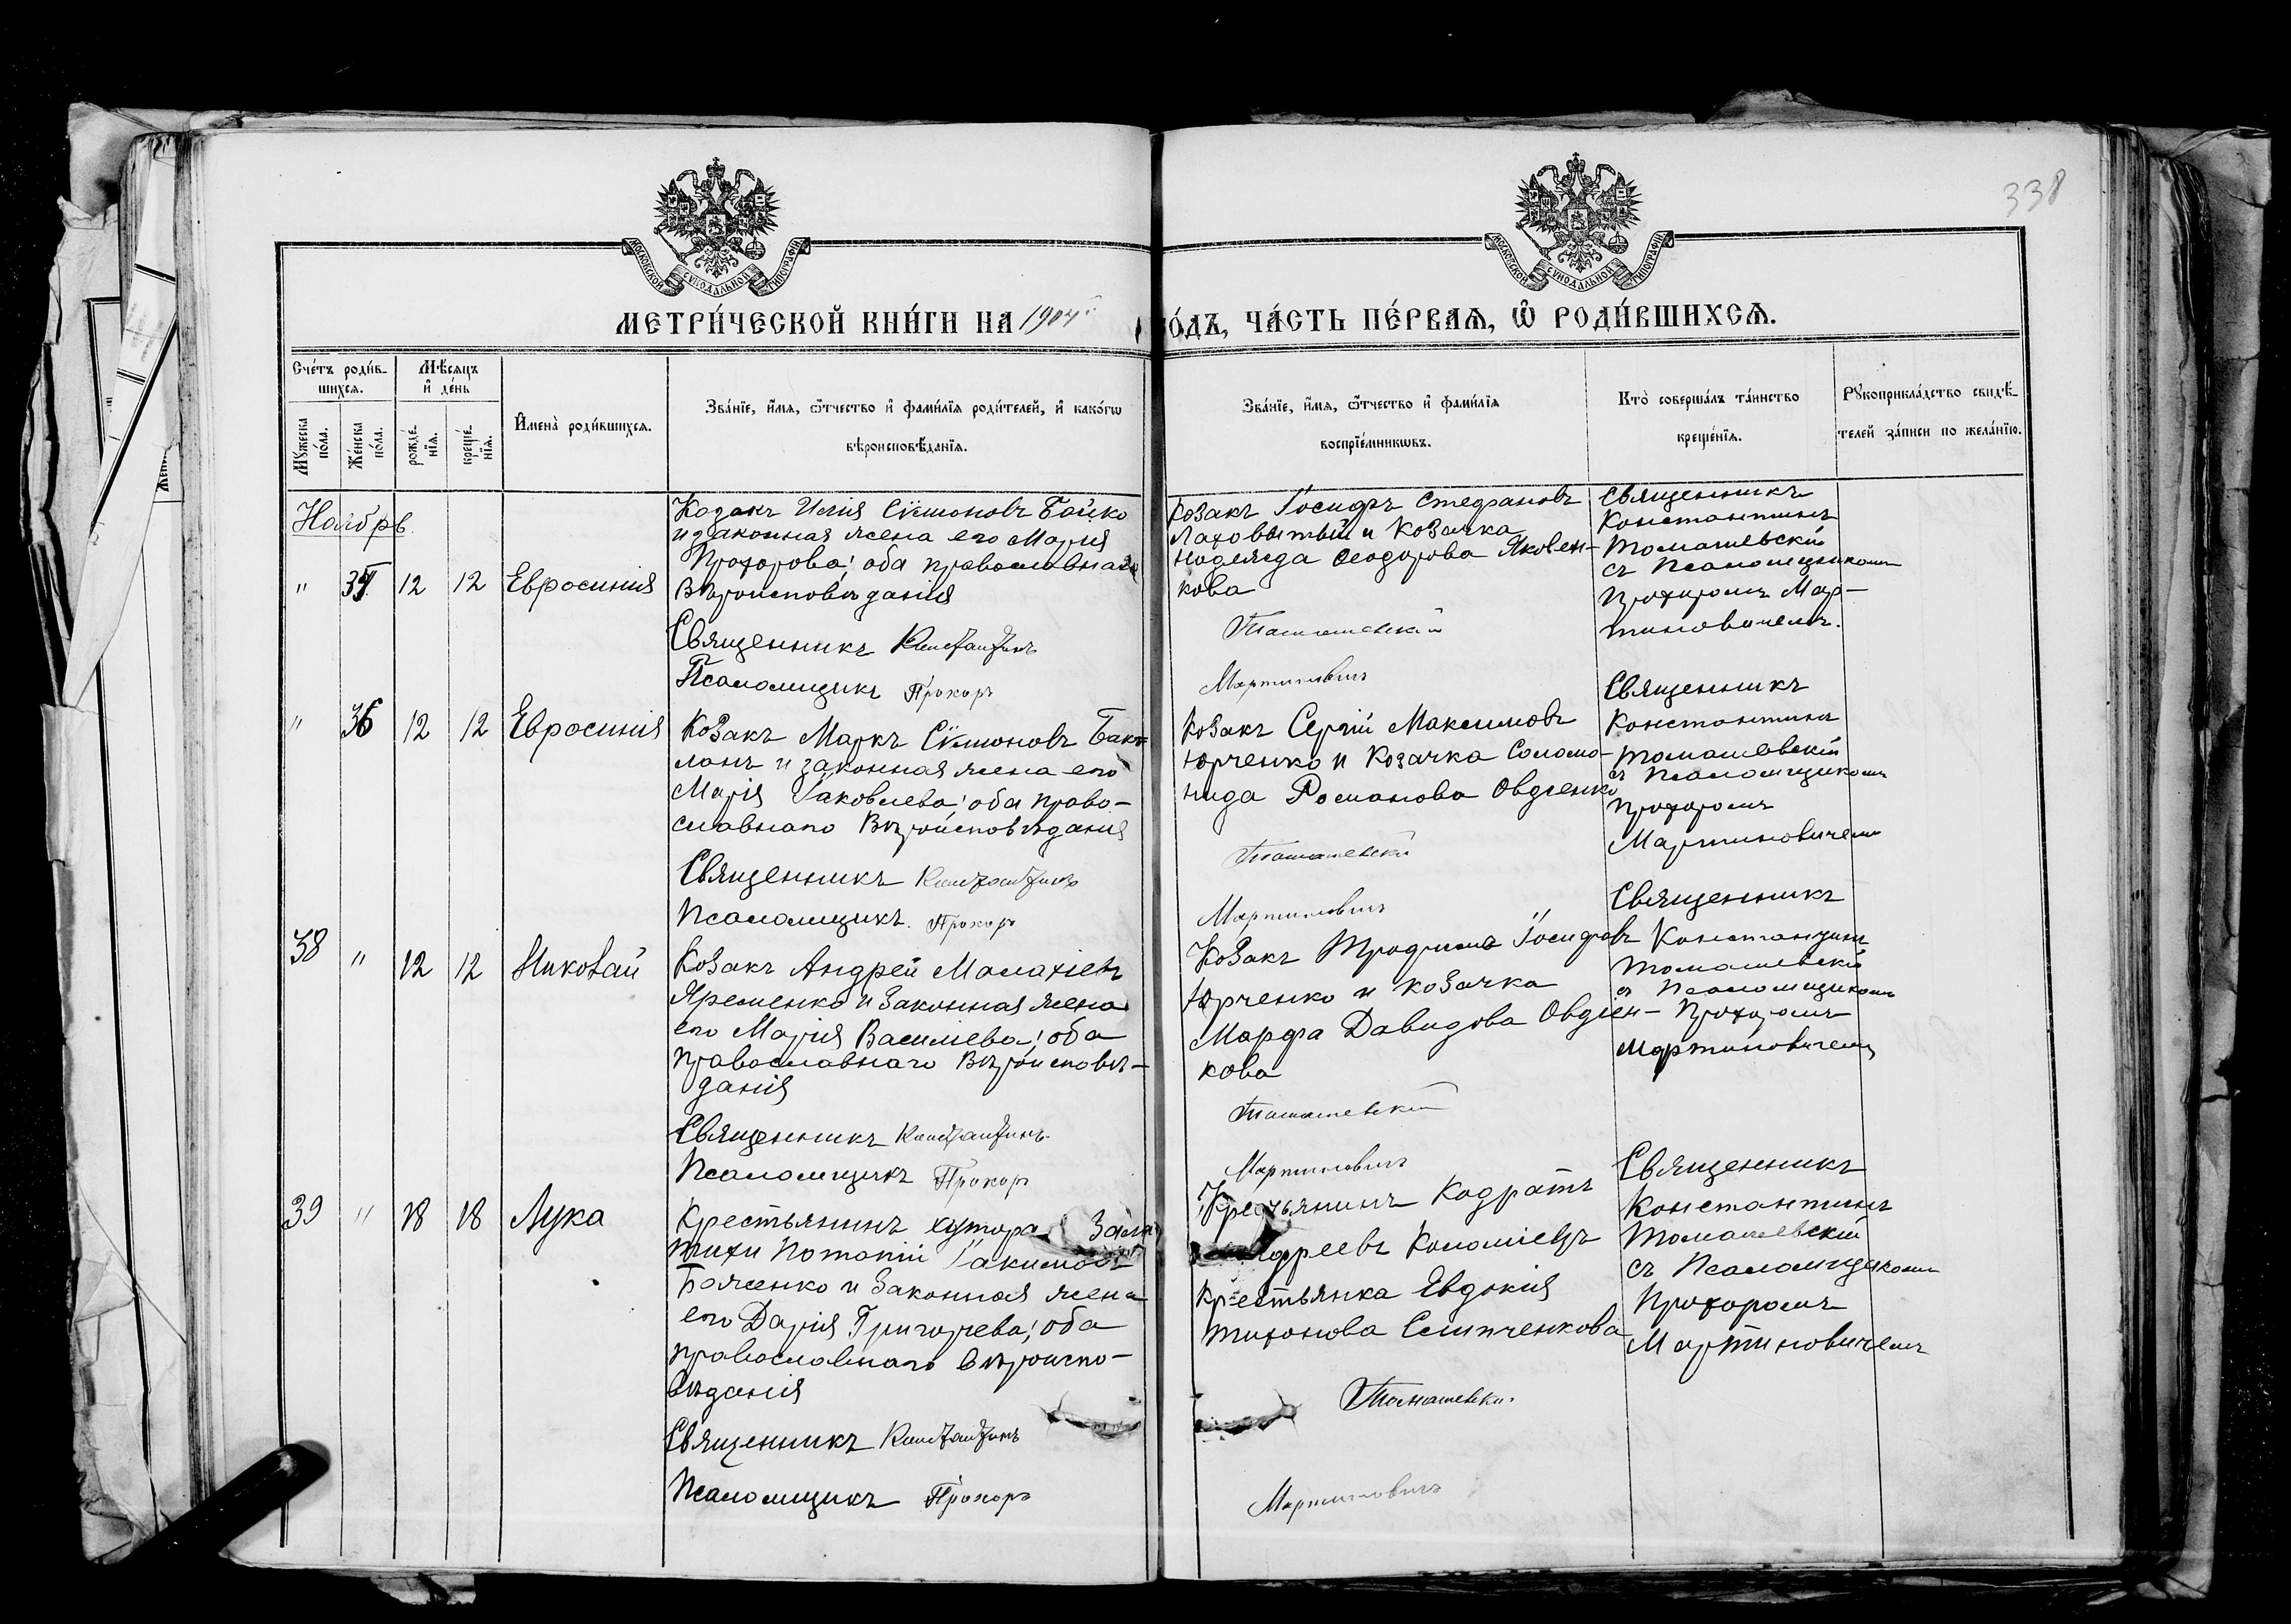 338
МОСКОВСКОЙ СУНОДАЛЬНОЙ ТИПОГРАФІИ
МОСКОВСКОЙ СУНОДАЛЬНОЙ ТИПОГРАФІИ
МЕТРИ́ЧЕСКОЙ КНИ́ГИ НА 1904
ОДЪ, ЧА́СТЬ ПЕ́РВАЯ, Ѽ РОДИ́ВШИХСЯ.
Сче́тъ роди́в-
шихся.
Мꙋ́жеска по́ла.
Же́нска по́ла.
Мѣ́сяцъ
и҆ де́нь
рожде́-
нїя.
креще́-
нїя.
И҆мена̀ роди́вшихся.
Зва́нїе, и҆́мя, ѻ҆́тчество и҆ фами́лїя роди́телей, и҆ како́гѡ
вѣроисповѣ́данїя.
Зва́нїе, и҆́мя, ѻ҆́тчество и҆ фами́лїя
воспрїе́мникѡвъ.
Кто̀ соверша́лъ та́инство
креще́нїя.
Рꙋкоприкла́дство свидѣ́-
телей за́писи по жела́нїю.
Ноябрь
" 35 12 12 Евросинія
Козакъ Илія Сѵмоновъ Бойко
и законная жена его Марія
Прохорова; оба православнаго
Вѣроисповѣданія
Священникъ Константинъ
Псаломщикъ Прохоръ
Козакъ Іосифъ Стефановъ
и Козачка
Надежда Ѳеодорова Яковен-
кова
Томашевскій
Мартиновичъ
Священникъ
Константинъ
Томашевскій
съ Псаломщикомъ
Прохоромъ Мар-
тиновичемъ.
" 36 12 12 Евросинія
Козакъ Маркъ Сѵмоновъ Бак-
ланъ и законная жена его
Марія Іаковлева; оба право-
славнаго Вѣроисповѣданія
Священникъ Константинъ
Псаломщикъ Прохоръ
Козакъ Сергій Максимовъ
Юрченко и Козачка Соломо-
нида Романова Овдіенко
Томашевскій
Мартиновичъ
Священникъ
Константинъ
Томашевскій
съ Псаломщикомъ
Прохоромъ
Мартиновичемъ
38 " 12 12 Николай
Козакъ Андрей Малахіевъ
Яременко и законная жена
его Марія Василіева; оба
православнаго Вѣроисповѣ-
данія
Священникъ Константинъ
Псаломщикъ Прохоръ
Козакъ Трофимъ Іосифовъ
Юрченко и козачка
Марфа Давидова Овдіен-
кова
Томашевскій
Мартиновичъ
Священникъ
Константинъ
Томашевскій
съ Псаломщикомъ
Прохоромъ
Мартиновичемъ
39 " 18 18 Лука
Крестьянинъ хутора
Потапій Іакимовъ
Баженко и законная жена
его Дарія Григоріева; оба
православнаго вѣроиспо-
вѣданія
Священникъ Константинъ
Псаломщикъ Прохоръ
Крестьянинъ Кодратъ
Коломіецъ
Крестьянка Евдокія
Тихонова Слипченкова
Томашевскій
Мартиновичъ
Священникъ
Константинъ
Томашевскій
съ Псаломщикомъ
Прохоромъ
Мартиновичемъ